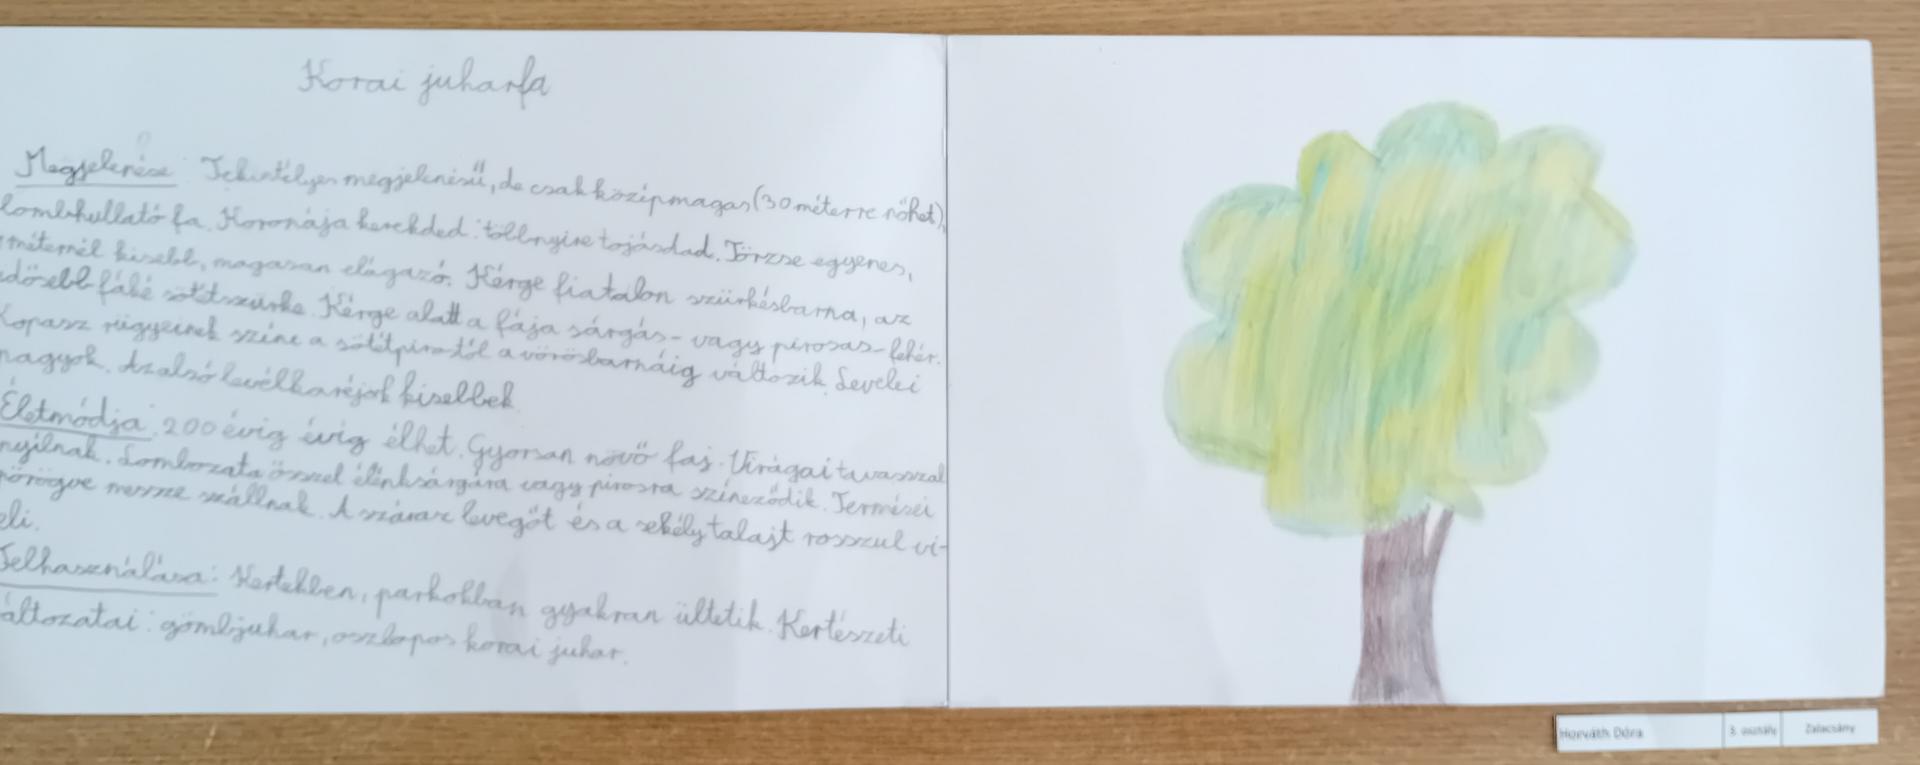 Korai juharfa
Megjelenése: Tekintélyes megjelenésű, de csak középmagas (30 méterre nőhet),
lombhullató fa. Koronája kerekded: többnyire tojásdad. Törzse egyenes,
méternél kisebb, magasan elágazó. Kérge fiatalon szürkésbarna, az
idősebb fáké sötétszürke. Kérge alatt a fája sárgás- vagy pirosas-fehér.
Kopasz rügyeinek színe a sötétpirostól a vörösbarnáig változik. Levelei
nagyok. Az alsó levélkaréjok kisebbek.
Életmódja: 200 évig évig élhet. Gyorsan növő faj. Virágai tavasszal
nyílnak. Lombozata ősszel élénksárgára vagy pirosra színeződik. Termései
pörögve messze szállnak. A száraz levegőt és a sekély talajt rosszul vi-
eli.
Felhasználása: Kertekben, parkokban gyakran ültetik. Kertészeti
áltozatai: gömbjuhar, oszlopos korai juhar.
Horváth Dóra 3. osztály Zalacsány